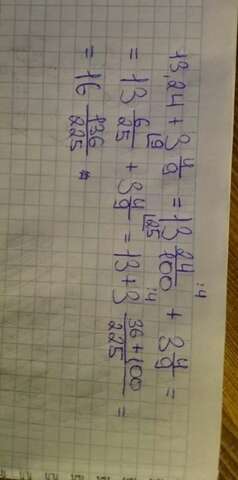 13,24 + 3 4/9 = 13 24:4/100:4 + 3 4/9 =
= 13 6/25 |9 + 3 4/9 |25 = 13 + 3 36 + 100/225 =
= 16 136/225